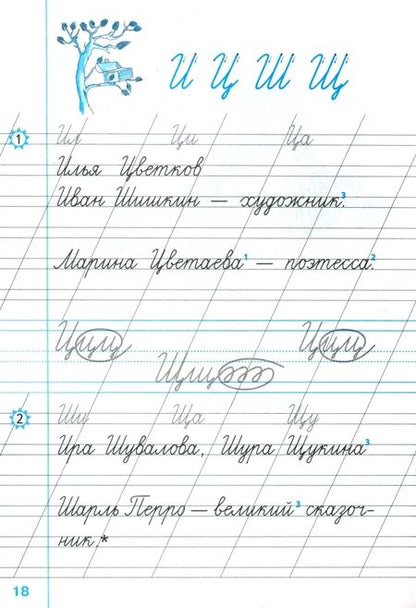 И Ц Ш Щ
1
Ил Ци Ца
Илья Цветков
Иван Шишкин — художник.³
Марина Цветаева¹ — поэтесса.²
2
Ши Ща Щу
Ира Шувалова, Шура Щукина³
Шарль Перро — великий³ сказоч-
ник.*
18